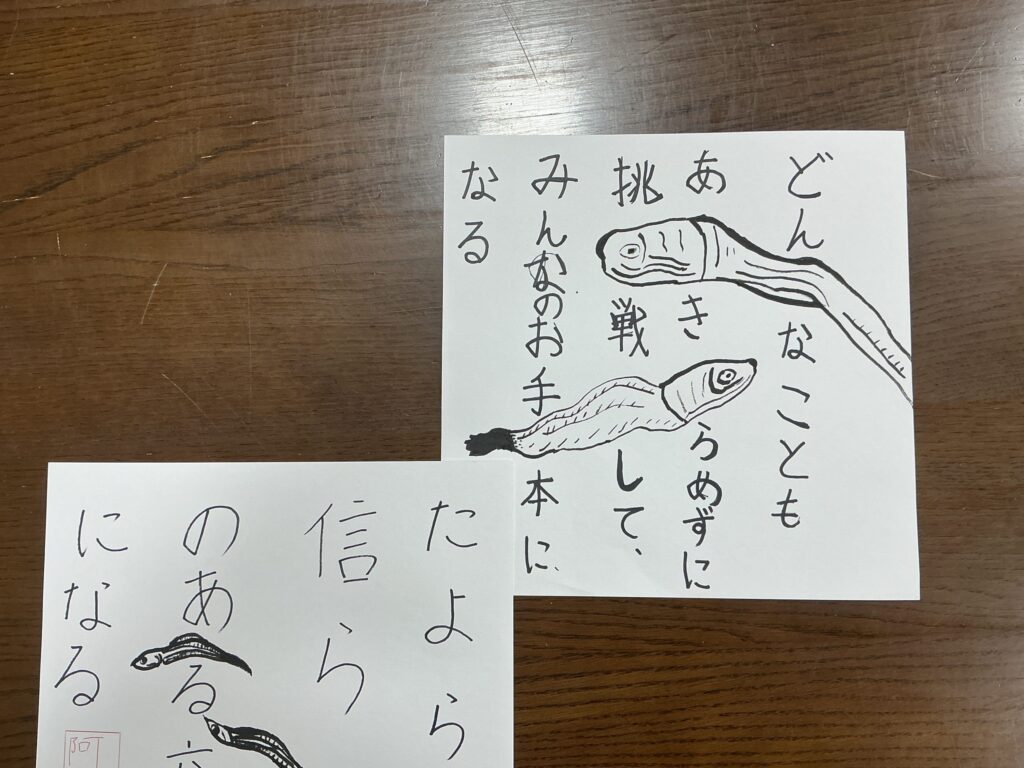 どんなことも
あきらめずに
挑戦して、
みんなのお手本に
なる
たよら
信ら
のある
になる
阿